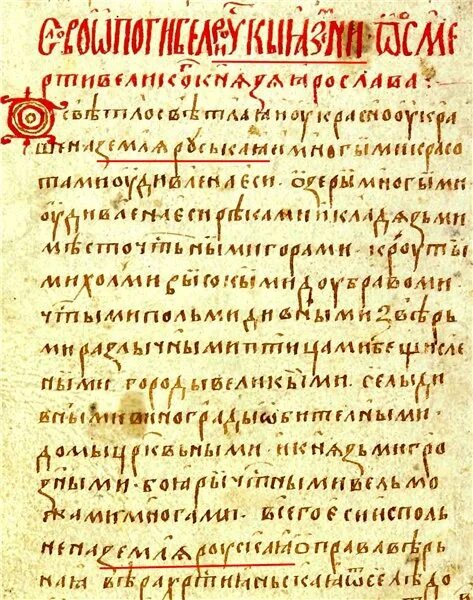 Слово ѡ погибели Рускыꙗ земли ѿ сме
рти великого кнѧзѧ Ꙗрослава:
О свѣтло свѣтлаꙗ и оукрасно оукра
шена землѧ Руськаꙗ и многыми красо
тами оудивлена еси · ѡзеры многыми
оудивлена еси рѣками и кладѧзьми
мѣсточтьными горами · кроуты
ми холми высокыми доубравоми ·
чтыми польми дивными звѣрь
ми разлычными птицами бещисле
ными · городы великыми · селы ди
вными винограды ѡбителными ·
домы црквьными · и кнѧзьми гро
зными · боꙗры чтными вельмо
жами многами · всего еси исполь
нена землѧ Роускаꙗ ѡ прававѣрь
наꙗ вѣра хртиꙗньскаꙗ ѿселѣ до